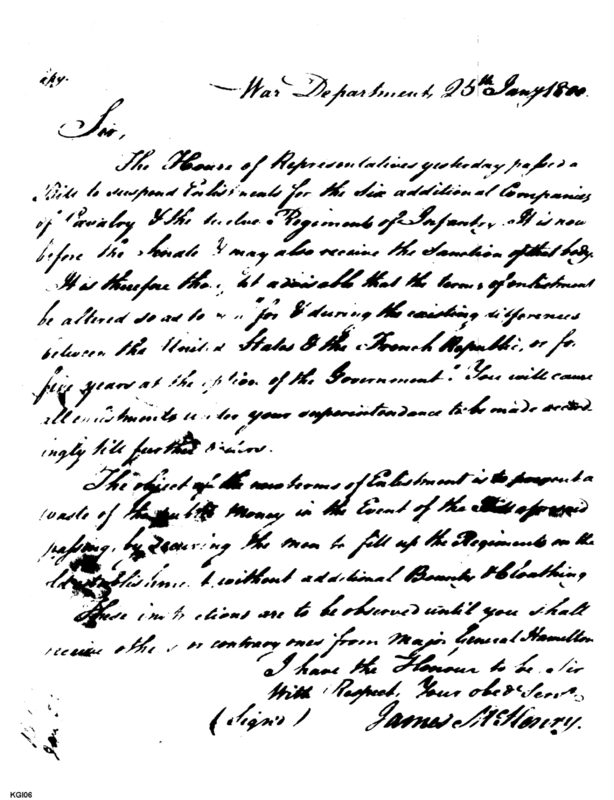 War Department, 25th Jany 1800.
Sir,
The House of Representatives yesterday passed a
Bill to suspend Enlistments for the six additional Companies
of Cavalry & the twelve Regiments of Infantry. It is now
before the Senate & may also receive the Sanction of that body.
It is therefore advisable that the terms of enlistment
be altered so as to "for & during the existing differences
between the United States & the French Republic, or for
five years at the option of the Government." You will cause
all enlistments under your superintendance to be made accord
ingly till further orders.
The object of the new terms of Enlistment is to prevent a
waste of the public Money in the Event of the Bill aforesaid
passing, by securing the men to fill up the Regiments on the
old establishment, without additional Bounty & Cloathing
These instructions are to be observed until you shall
receive others or contrary ones from Major General Hamilton
I have the Honour to be, Sir
With Respect, Your obedt Servt
(Signd) James McHenry.
KGI06